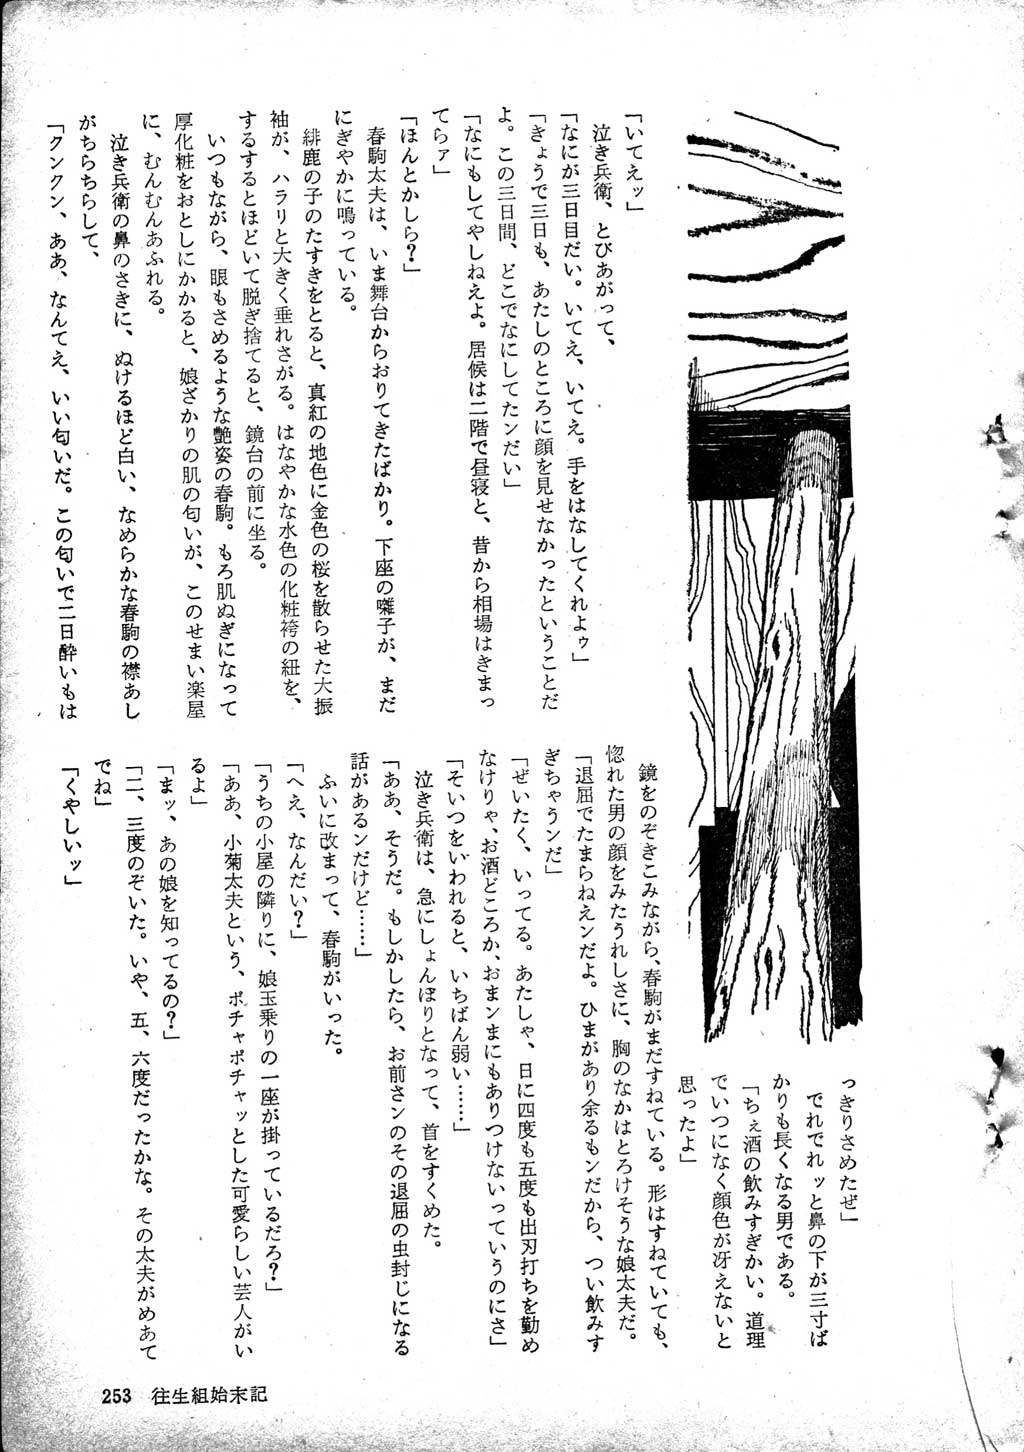 「いてえッ」
泣き兵衛、とびあがって、
「なにが三日目だい。いてえ、いてえ。手をはなしてくれよゥ」
「きょうで三日も、あたしのところに顔を見せなかったということだ
よ。この三日間、どこでなにしてたンだい」
「なにもしてやしねえよ。居候は二階で昼寝と、昔から相場はきまっ
てらァ」
「ほんとかしら？」
春駒太夫は、いま舞台からおりてきたばかり。下座の囃子が、まだ
にぎやかに鳴っている。
緋鹿の子のたすきをとると、真紅の地色に金色の桜を散らせた大振
袖が、ハラリと大きく垂れさがる。はなやかな水色の化粧袴の紐を、
するするとほどいて脱ぎ捨てると、鏡台の前に坐る。
いつもながら、眼もさめるような艶姿の春駒。もろ肌ぬぎになって
厚化粧をおとしにかかると、娘ざかりの肌の匂いが、このせまい楽屋
に、むんむんあふれる。
泣き兵衛の鼻のさきに、ぬけるほど白い、なめらかな春駒の襟あし
がちらちらして、
「クンクン、ああ、なんてえ、いい匂いだ。この匂いで二日酔いもは
っきりさめたぜ」
でれでれッと鼻の下が三寸ば
かりも長くなる男である。
「ちぇ酒の飲みすぎかい。道理
でいつになく顔色が冴えないと
思ったよ」
鏡をのぞきこみながら、春駒がまだすねている。形はすねていても、
惚れた男の顔をみたうれしさに、胸のなかはとろけそうな娘太夫だ。
「退屈でたまらねえンだよ。ひまがあり余るもンだから、つい飲みす
ぎちゃうンだ」
「ぜいたく、いってる。あたしゃ、日に四度も五度も出刃打ちを勤め
なけりゃ、お酒どころか、おまンまにもありつけないっていうのにさ」
「そいつをいわれると、いちばん弱い……」
泣き兵衛は、急にしょんぼりとなって、首をすくめた。
「ああ、そうだ。もしかしたら、お前さンのその退屈の虫封じになる
話があるンだけど……」
ふいに改まって、春駒がいった。
「へえ、なんだい？」
「うちの小屋の隣りに、娘玉乗りの一座が掛っているだろ？」
「ああ、小菊太夫という、ポチャポチャッとした可愛らしい芸人がい
るよ」
「まッ、あの娘を知ってるの？」
「二、三度のぞいた。いや、五、六度だったかな。その太夫がめあて
でね」
「くやしいッ」
253 往生組始末記